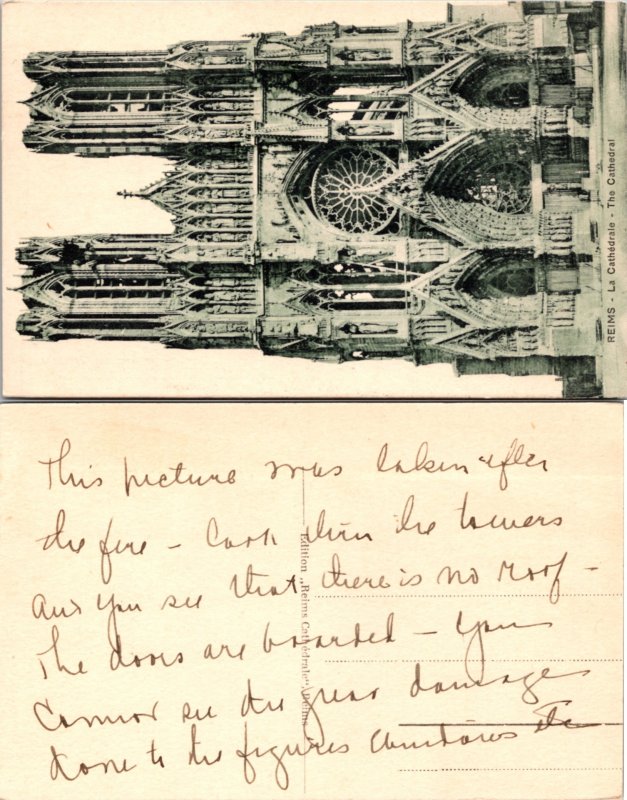 REIMS - La Cathédrale - The Cathedral
This picture was taken after
the fire - Look thru the towers
and you see that there is no roof -
The doors are boarded - You
Cannot see the great damage
done to the figures windows etc
Edition „Reims Cathédrale" Reims